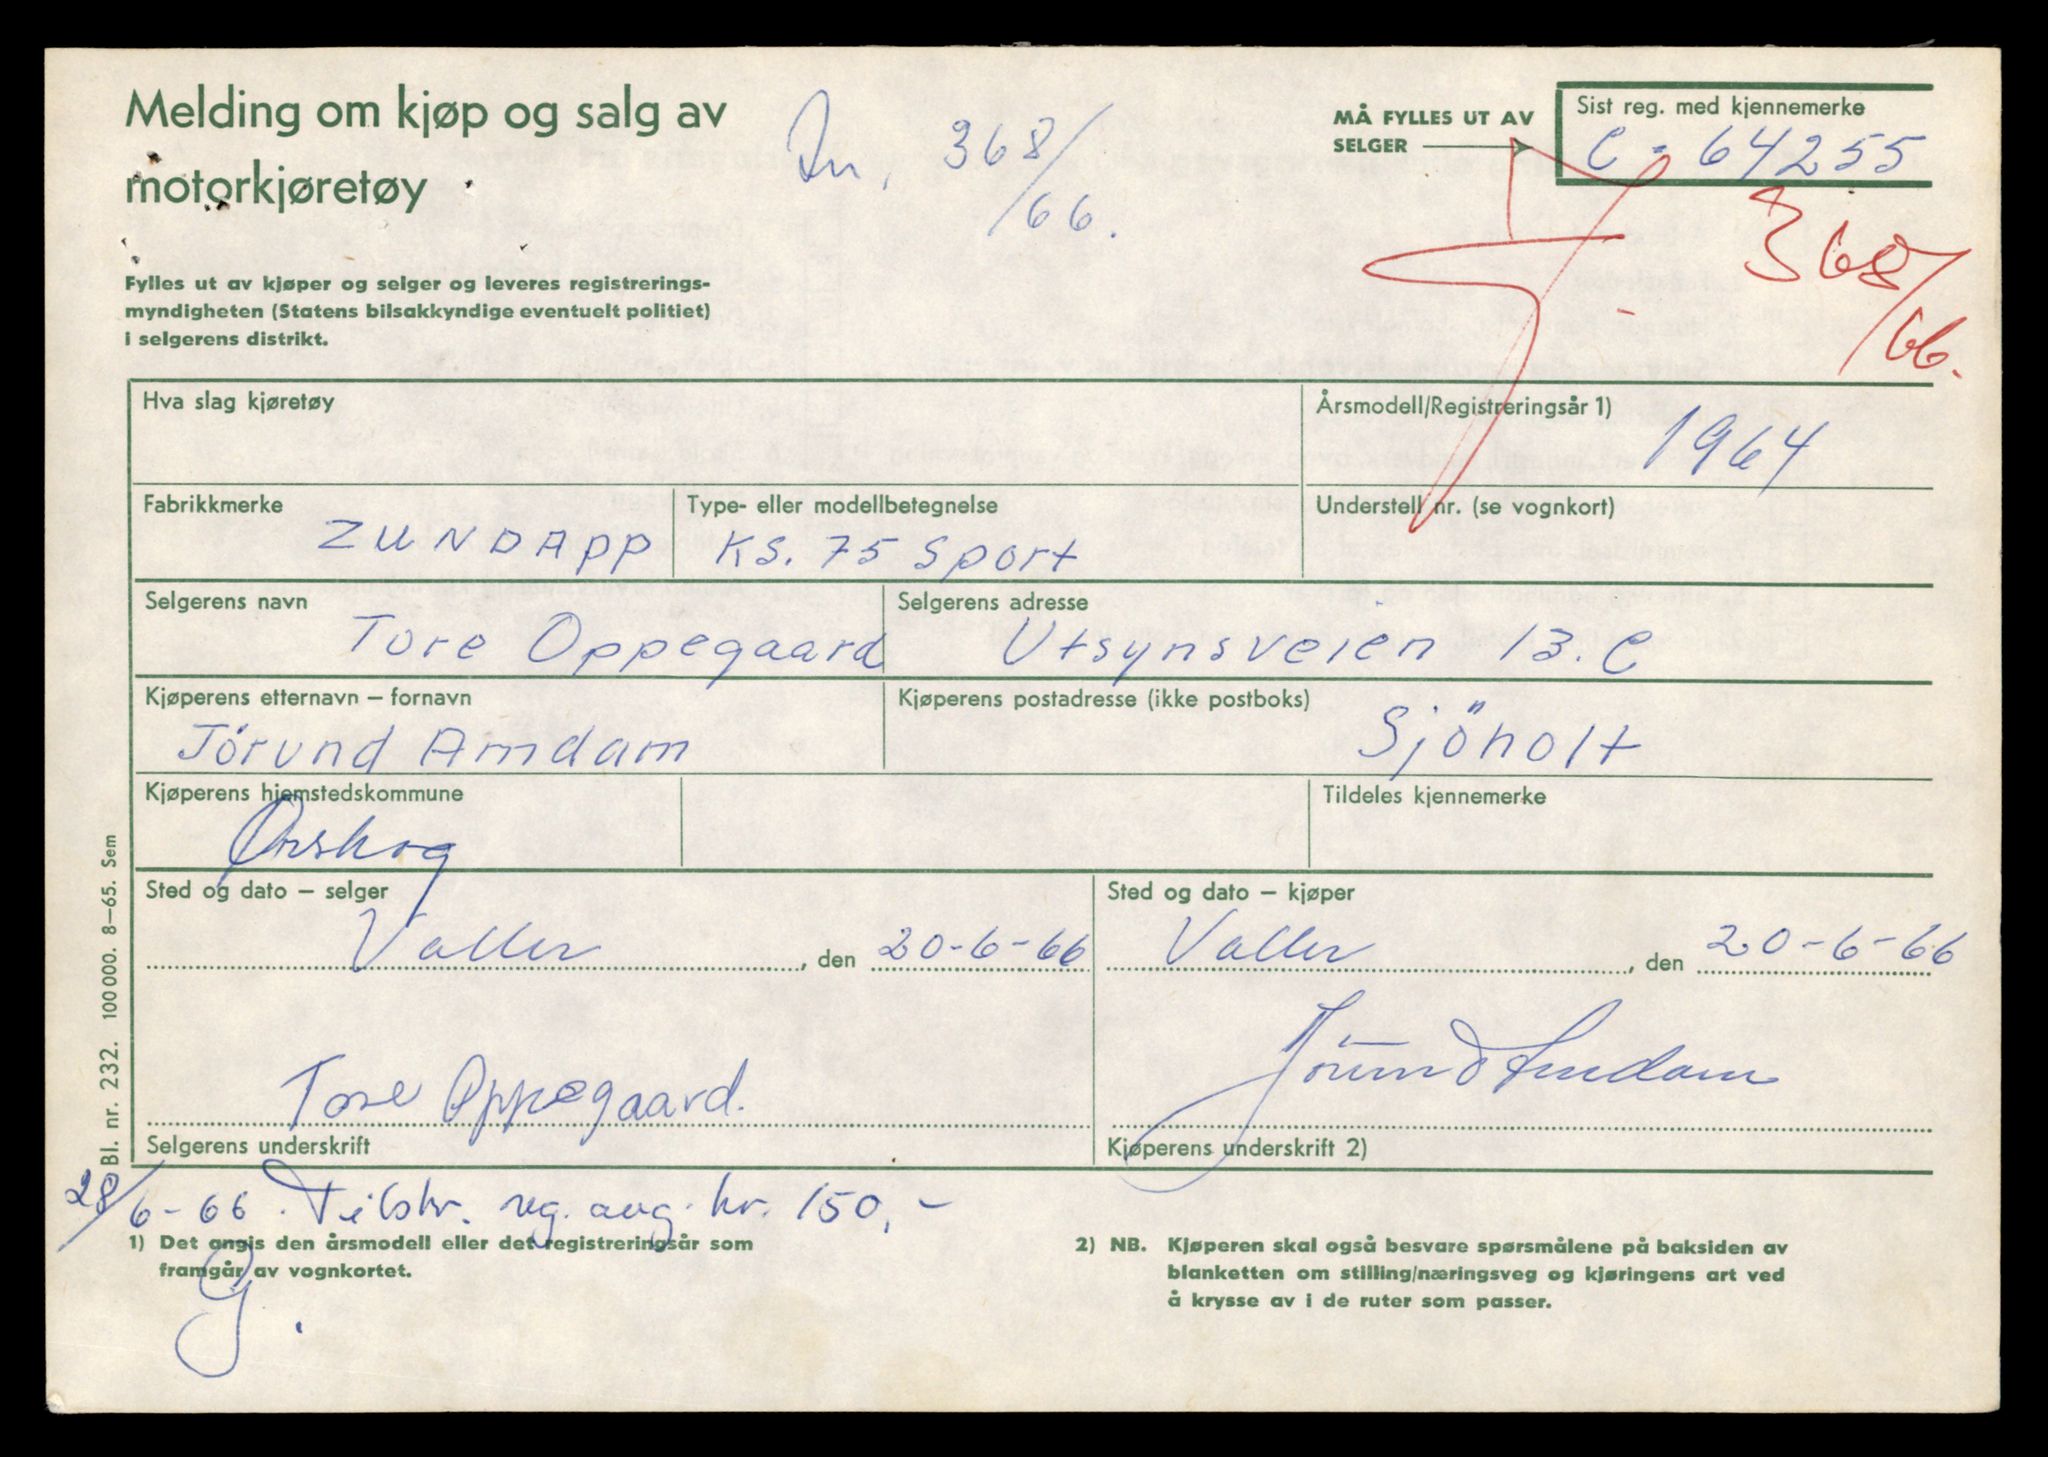 Melding om kjøp og salg av
motorkjøretøy
368/66.
MÅ FYLLES UT AV
SELGER
Sist reg. med kjennemerke
C - 64255
368/66.
Fylles ut av kjøper og selger og leveres registrerings-
myndigheten (Statens bilsakkyndige eventuelt politiet)
i selgerens distrikt.
Hva slag kjøretøy
Årsmodell/Registreringsår 1)
1964
Fabrikkmerke
ZUNDAPP
Type- eller modellbetegnelse
KS. 75 Sport
Understell nr. (se vognkort)
Selgerens navn
Tore Oppegaard
Selgerens adresse
Utsynsveien 13. C
Kjøperens etternavn – fornavn
Jörund Amdam
Kjøperens postadresse (ikke postboks)
Sjöholt
Kjøperens hjemstedskommune
Ørskog
Tildeles kjennemerke
Sted og dato – selger
Valler, den 20-6-66
Sted og dato – kjøper
Valler, den 20-6-66
Tore Oppegaard.
Selgerens underskrift
Jörund Amdam
Kjøperens underskrift 2)
Bl. nr. 232. 100 000. 8–65. Sem
28/6-66. Tilstr. reg. avg. kr. 150,-
1) Det angis den årsmodell eller det registreringsår som
framgår av vognkortet.
2) NB. Kjøperen skal også besvare spørsmålene på baksiden av
blanketten om stilling/næringsveg og kjøringens art ved
å krysse av i de ruter som passer.